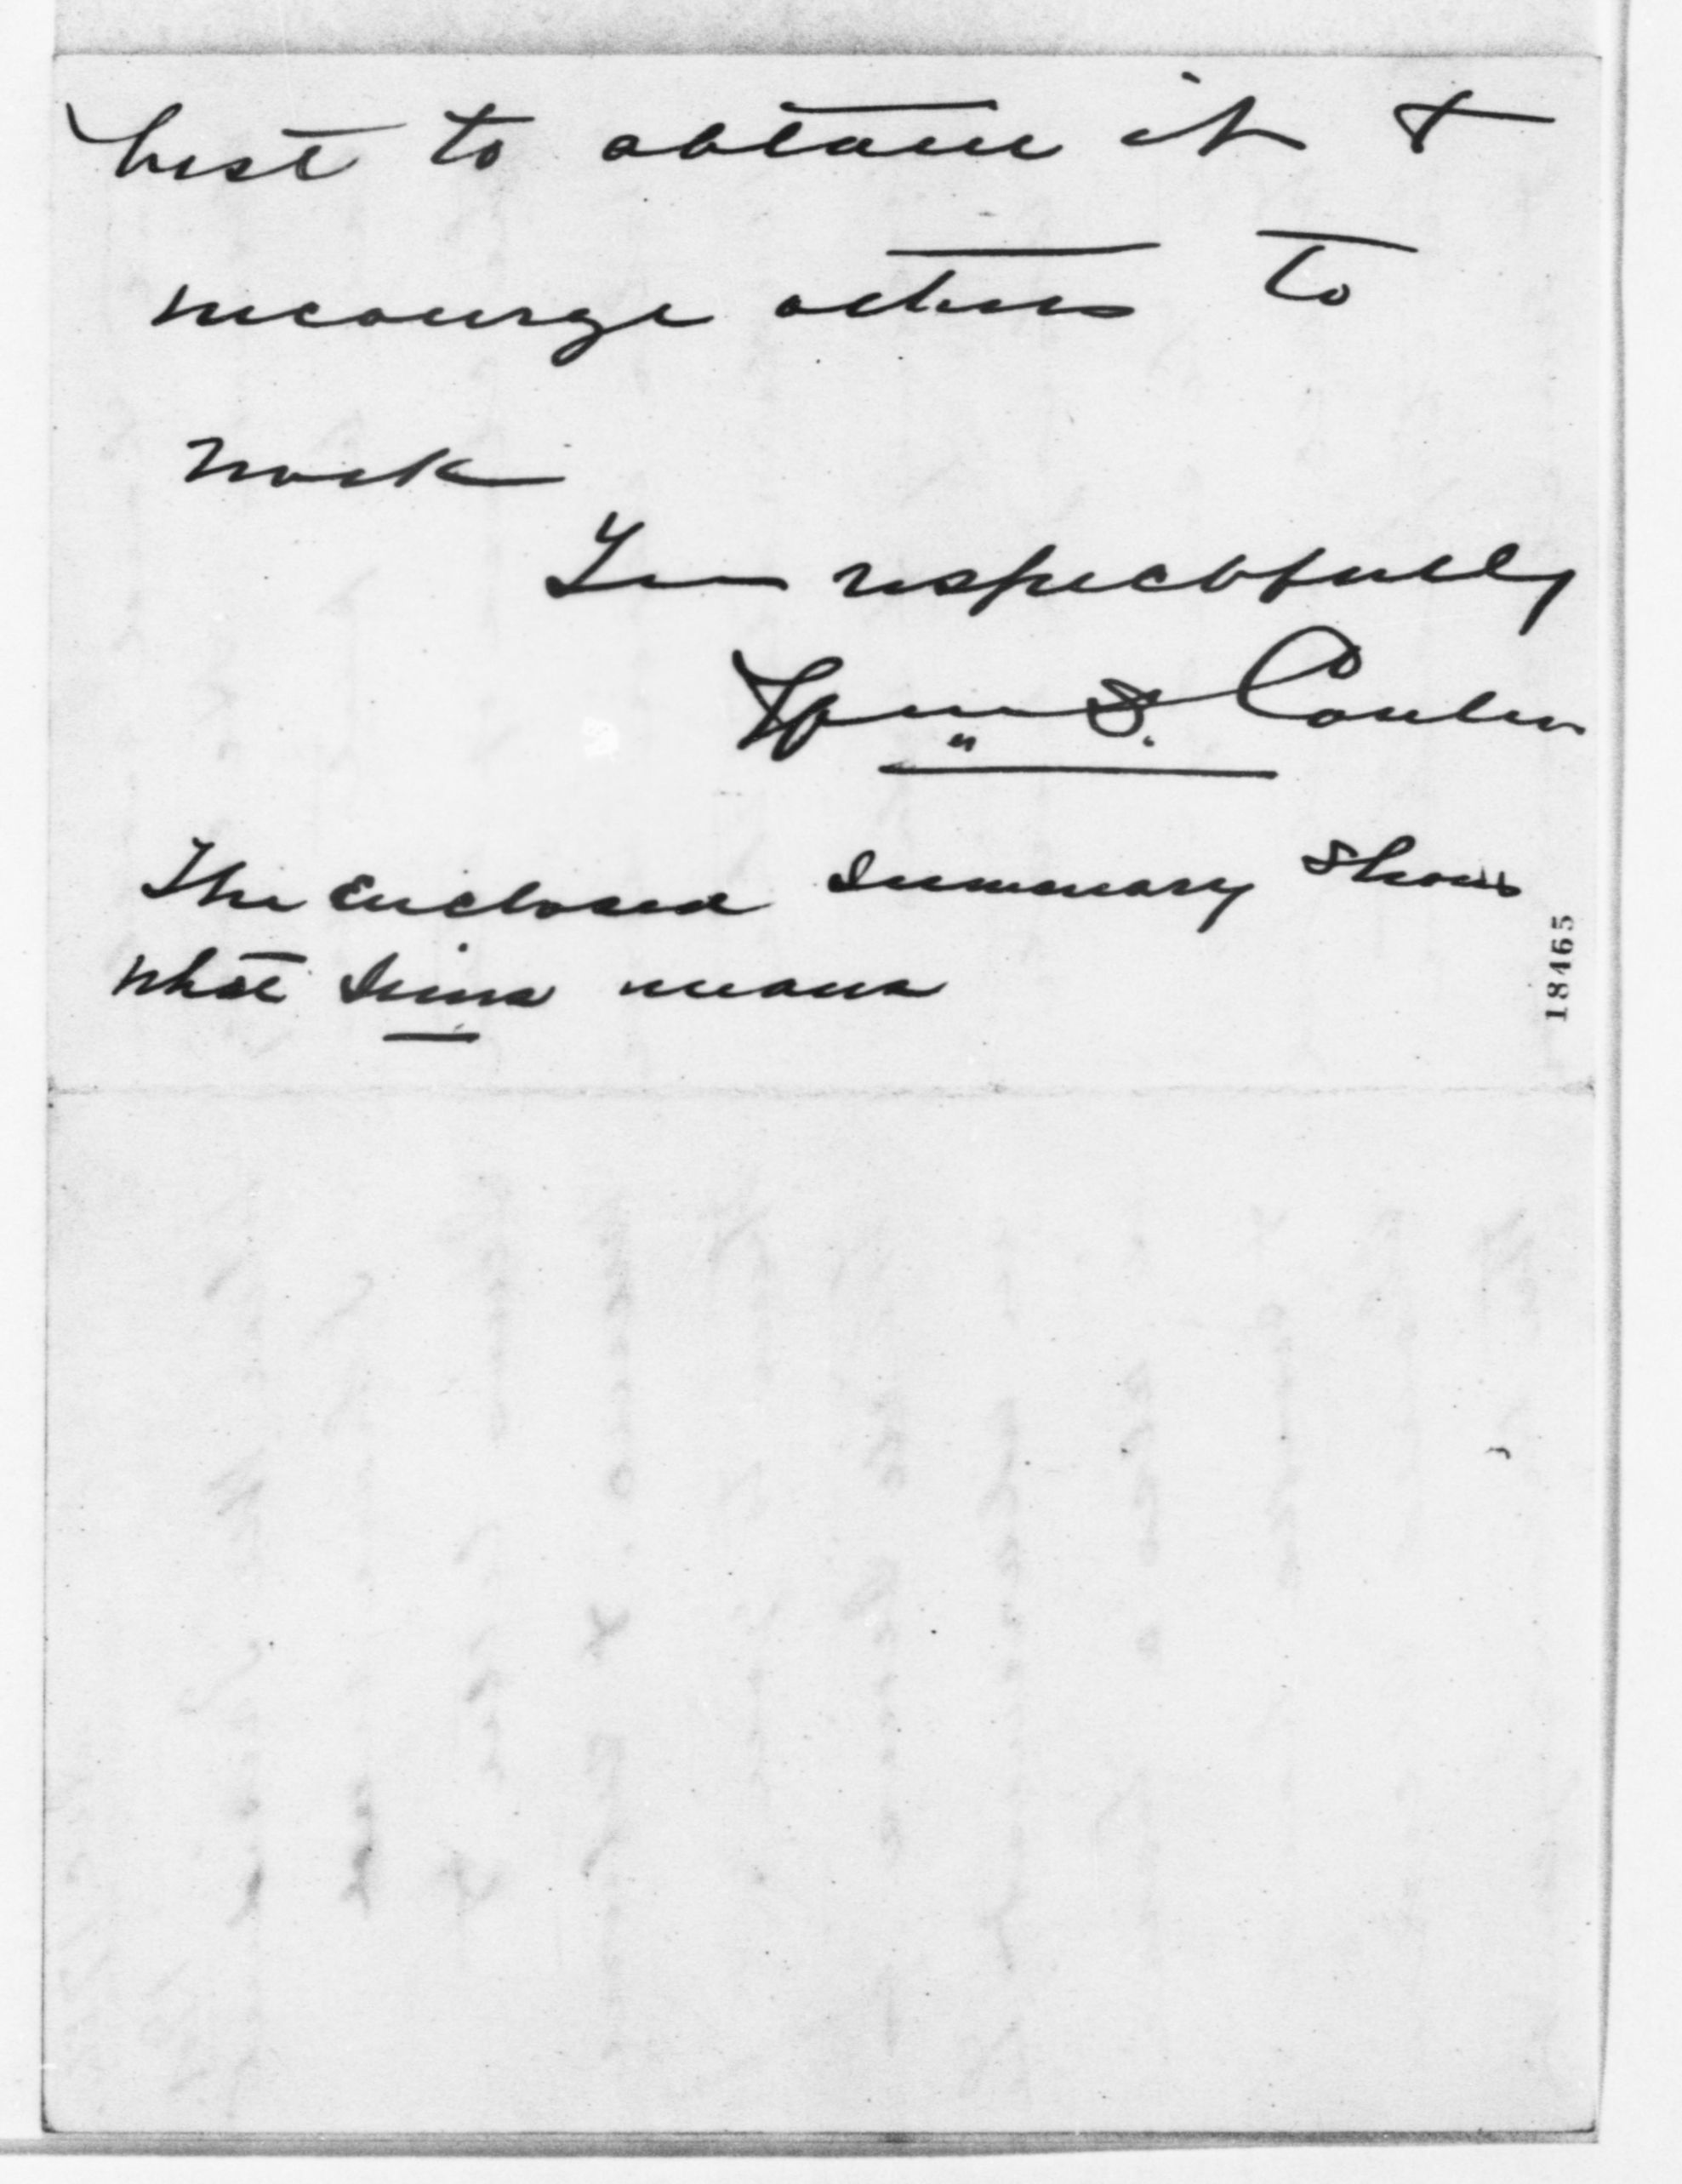 best to obtain it &
encourage others to
work
Yours respectfully
Wm S.
The Enclosed Summary Shows
what means
18465